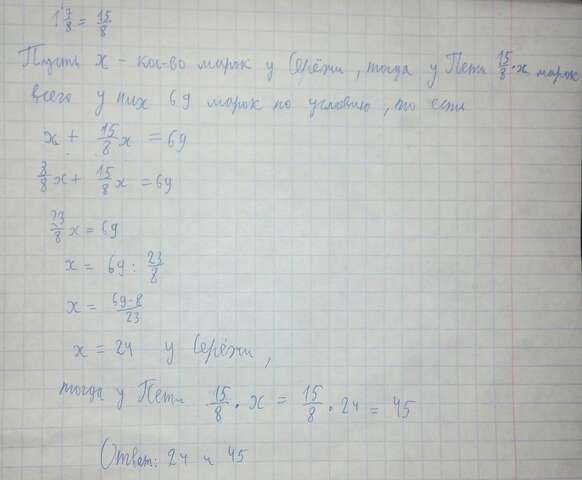 1 7/8 = 15/8
Пусть x - кол-во марок у Серёжи, тогда у Пети 15/8 · x марок
всего у них 69 марок по условию, то есть
x + 15/8 x = 69
8/8 x + 15/8 x = 69
23/8 x = 69
x = 69 : 23/8
x = 69·8/23
x = 24 у Серёжи,
тогда у Пети 15/8 · x = 15/8 · 24 = 45
Ответ: 24 и 45